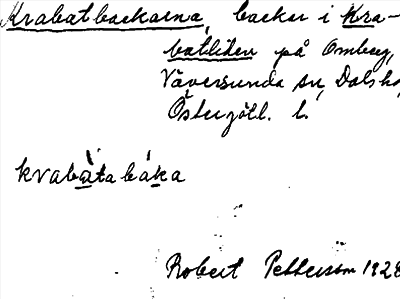 Krabatbackarna, backar i Kra-
batliden på Omberg,
Väversunda sn, Dals hd
Östergötl. l.
kvabàtabáka
Robert Pettersson 1928